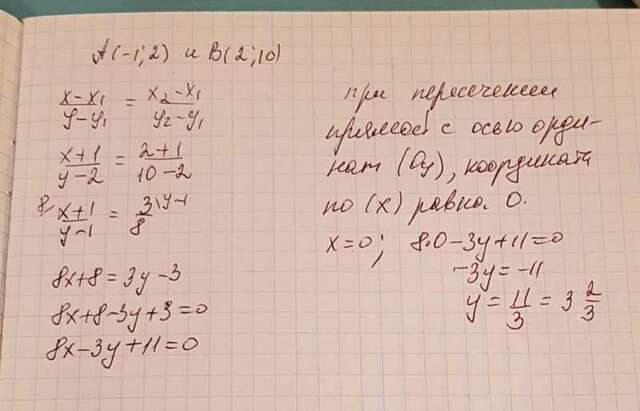 A(-1;2) и B(2;10)
x-x₁/y-y₁ = x₂-x₁/y₂-y₁
x+1/y-2 = 2+1/10-2
8\ x+1/y-1 = 3/8 \y-1
8x+8=3y-3
8x+8-3y+3=0
8x-3y+11=0
при пересечении
прямой с осью орди-
нат (Oy), координата
по (x) равна 0.
x=0; 8·0-3y+11=0
-3y=-11
y = 11/3 = 3 2/3